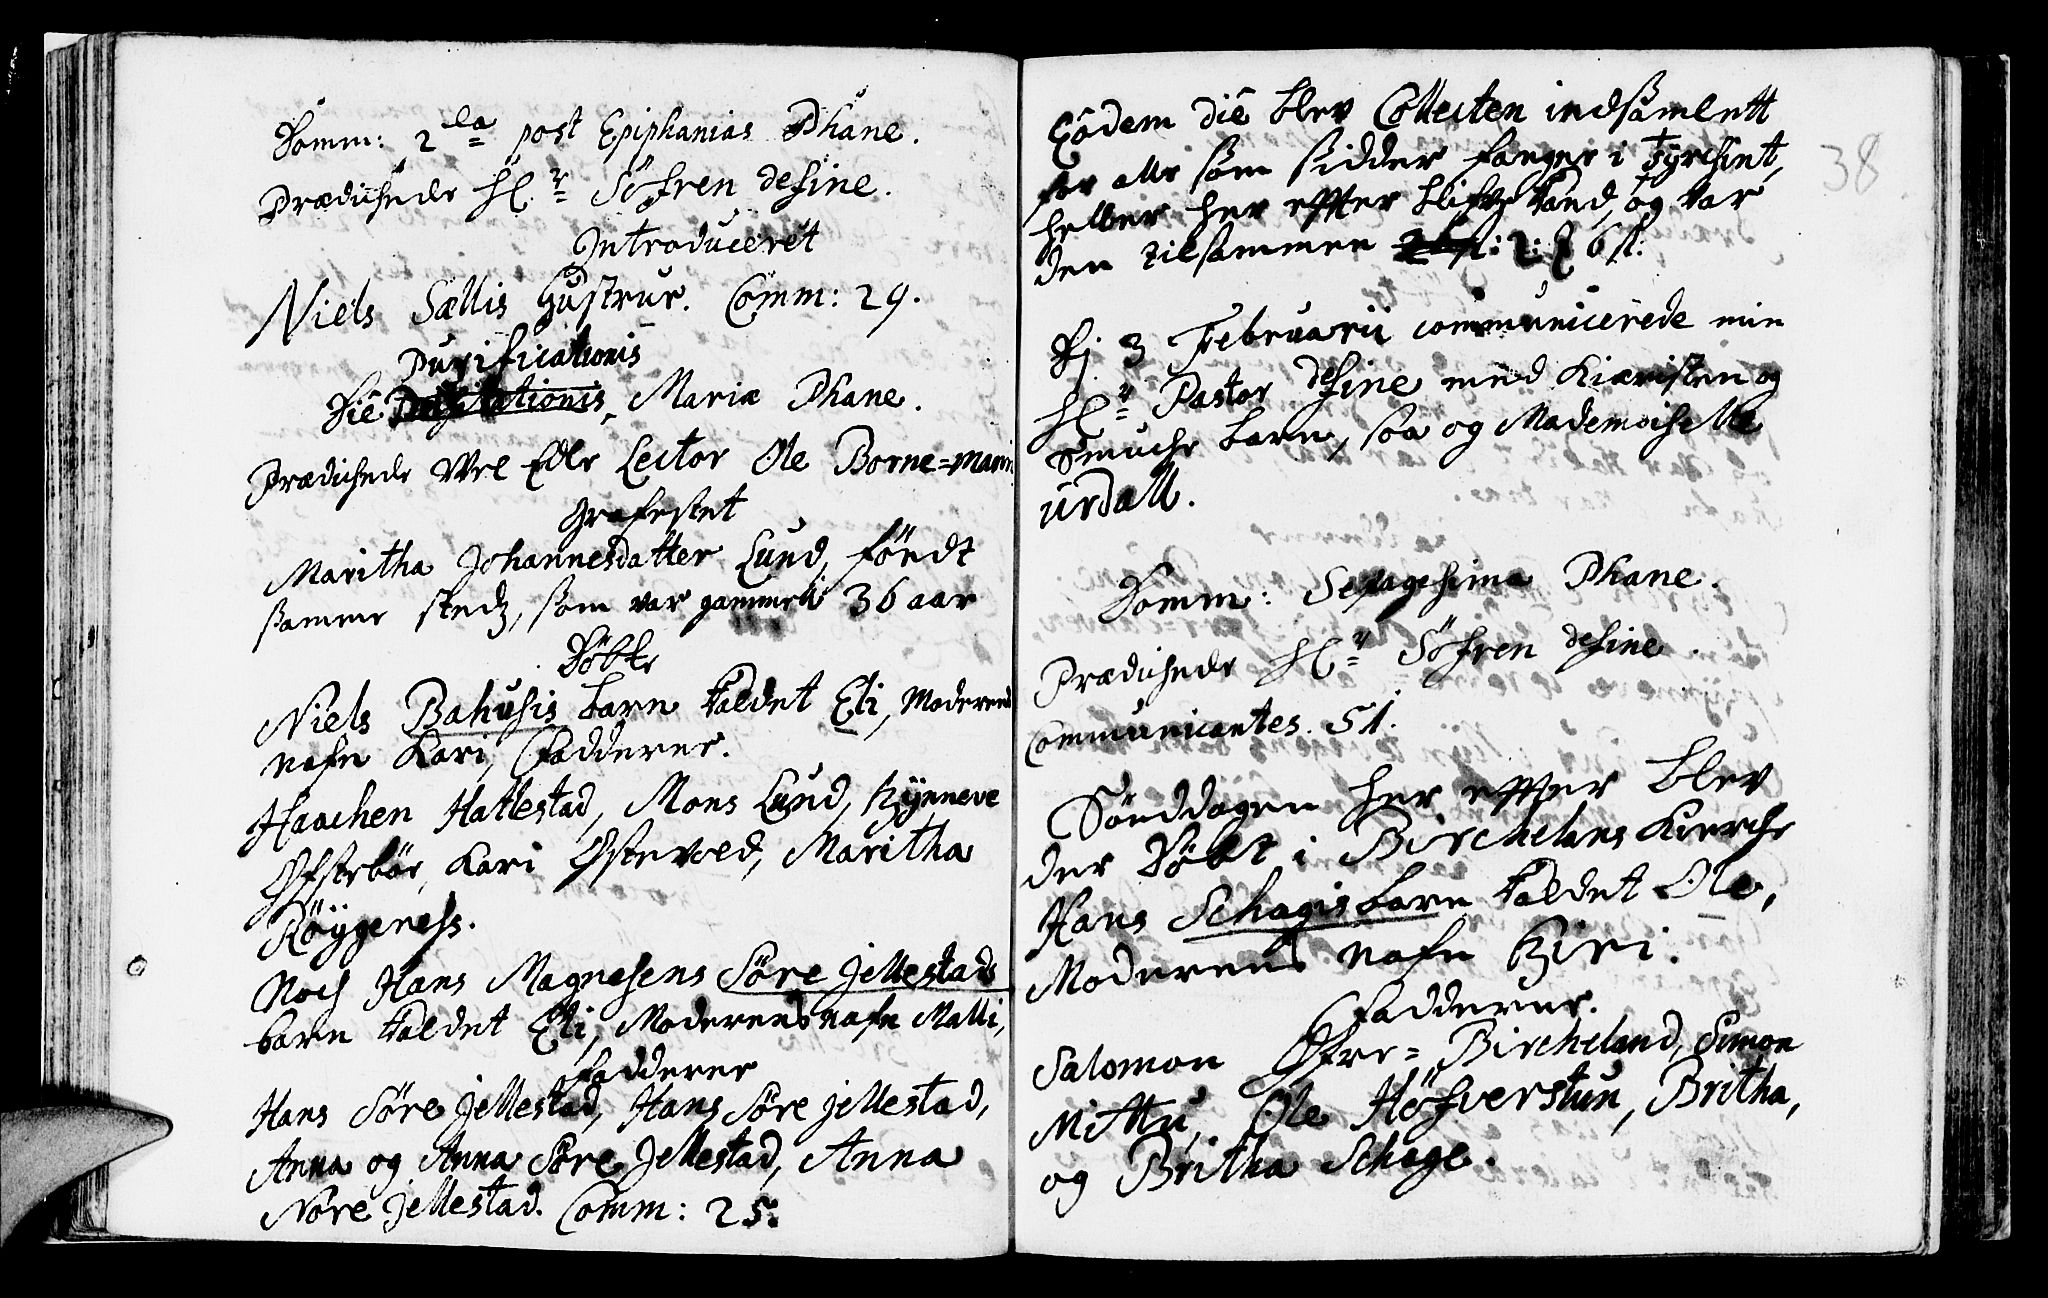 Domm: 2da post Epiphanias Phane.
Prædichede Hl:r Söfren deFine.
Introduceret
Niels Sællis Hustrue. Comm: 29.
Purificationis
Die Mariæ Phane.
Prædichede Wel Edle Lector Ole Borne=Mann
Grafestet
Maritha Johannesdatter Lund, föedt
samme stedz, som var gammell 36 aar
Döbte
Niels Bahusis barn kaldet Eli, Moderens
nafn Kari, Fadderer.
Haachen Hatlestad, Mons Lund, Synneve
Øfsteböe, Kari Østevold, Maritha
Röÿgeness.
Noch Hans Magnesens Söre Jellestads
barn kaldet Eli, Moderens nafn Malli,
Fadderer
Hans Söre Jellestad, Hans Söre Jellestad,
Anna og Anna Söre Jellestad, Anna
Nore Jellestad. Comm: 25.
38
Eodem die blev Collecten indsamlett
for alle som sidder fanger i Tyrchiet,
heller her effter blifve kand, og var
den tilsammen 6 sl:
Dj 3 Februarii communicerede min
Hl:r Pastor deFine med Kiæristen og
Smuche barn, saa og Mademoiselle
Urdall.
Domm: Sexagesima Phane.
Prædichede Hl:r Söfren deFine.
Communicantes. 51.
Sönddagen her effter blev
der Döbt i Birchelans Kierche
Hans Schagis barn kaldet Ole,
Moderens nafn Siri.
Fadderer.
Salomon Øfre=Bircheland, Simon
Mittu, Ole Höfverstun, Britha,
og Britha Schage.